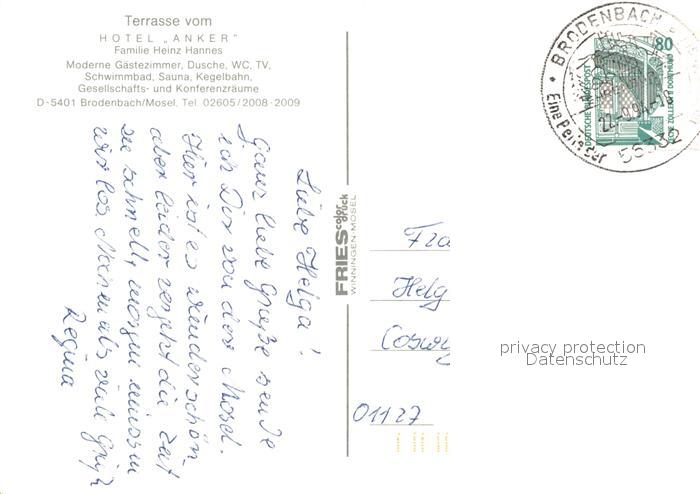 Terrasse vom
HOTEL „ANKER"
Familie Heinz Hannes
Moderne Gästezimmer, Dusche, WC, TV,
Schwimmbad, Sauna, Kegelbahn,
Gesellschafts- und Konferenzräume
D-5401 Brodenbach/Mosel. Tel. 02605/2008-2009
Liebe Helga!
Ganz liebe Grüße sende
ich Dir von der Mosel.
Hier ist es wunderschön
aber leider vergeht die Zeit
zu schnell, morgen müssen
wir los. Nochmals viele Grüße
Regina
FRIES color druck
WINNINGEN-MOSEL
BRODENBACH
Eine Perle der
56332
80
DEUTSCHE BUNDESPOST
ZECHE ZOLLERN II DORTMUND
Fra
Helg
Coswig
01127
privacy protection
Datenschutz